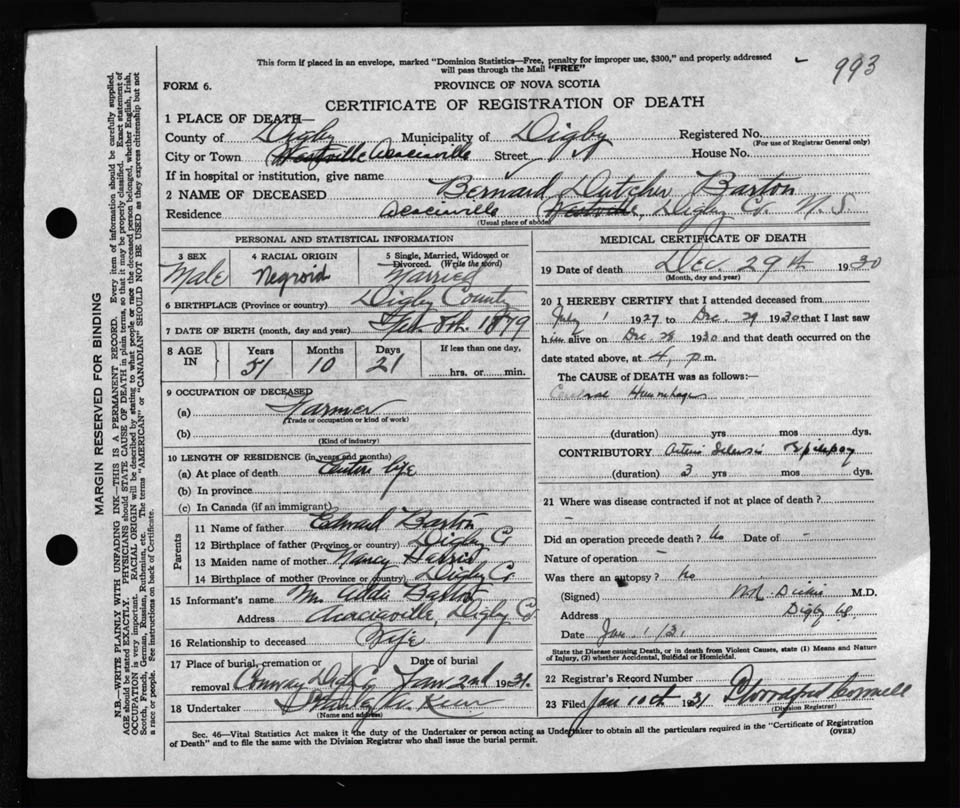 This form if placed in an envelope, marked "Dominion Statistics—Free, penalty for improper use, $300," and properly addressed
will pass through the Mail "FREE"
993
FORM 6.
PROVINCE OF NOVA SCOTIA
CERTIFICATE OF REGISTRATION OF DEATH
1 PLACE OF DEATH—
County of Digby Municipality of Digby Registered No.
(For use of Registrar General only)
City or Town Westville Acaciaville Street, House No.
If in hospital or institution, give name
2 NAME OF DECEASED Bernard Dutcher Barton
Residence Acaciaville Westville, Digby Co. N.S.
(Usual place of abode)
PERSONAL AND STATISTICAL INFORMATION
3 SEX
Male
4 RACIAL ORIGIN
Negroid
5 Single, Married, Widowed or
Divorced. (Write the word)
Married
6 BIRTHPLACE (Province or country) Digby County
7 DATE OF BIRTH (month, day and year) Feb 8th. 1879
8 AGE
IN
Years
51
Months
10
Days
21
If less than one day,
hrs. or min.
9 OCCUPATION OF DECEASED
(a) Farmer
(Trade or occupation or kind of work)
(b)
(Kind of industry)
10 LENGTH OF RESIDENCE (in years and months)
(a) At place of death Entire life
(b) In province
(c) In Canada (if an immigrant)
Parents
11 Name of father Edward Barton
12 Birthplace of father (Province or country) Digby Co
13 Maiden name of mother Nancy
14 Birthplace of mother (Province or country) Digby Co
15 Informant's name Barton
Address Acaciaville, Digby Co
16 Relationship to deceased Wife
17 Place of burial, cremation or
removal Conway Digby
Date of burial
Jan 2nd 1931.
18 Undertaker
(Name and address)
MEDICAL CERTIFICATE OF DEATH
19 Date of death Dec 29th 1930
(Month, day and year)
20 I HEREBY CERTIFY that I attended deceased from
July 1 1927 to Dec. 29 1930 that I last saw
him alive on Dec 28 1930 and that death occurred on the
date stated above, at 4, p.m.
The CAUSE OF DEATH was as follows:—
Cerebral Hemorrhage
(duration) yrs mos dys.
CONTRIBUTORY Arterio Sclerosis Epilepsy
(duration) 3 yrs. mos. dys.
21 Where was disease contracted if not at place of death?
-
Did an operation precede death? No Date of -
Nature of operation -
Was there an autopsy? No
(Signed) M.D.
Address Digby
Date Jan. 1/31
State the Disease causing Death, or in death from Violent Causes, state (1) Means and Nature
of Injury, (2) whether Accidental, Suicidal or Homicidal.
22 Registrar's Record Number
23 Filed Jan 10th 1931
(Division Registrar)
Sec. 46—Vital Statistics Act makes it the duty of the Undertaker or person acting as Undertaker to obtain all the particulars required in the "Certificate of Registration
of Death" and to file the same with the Division Registrar who shall issue the burial permit.
(OVER)
MARGIN RESERVED FOR BINDING
N.B.—WRITE PLAINLY WITH UNFADING INK—THIS IS A PERMANENT RECORD. Every item of information should be carefully supplied.
AGE should be stated EXACTLY. PHYSICIANS should STATE CAUSE OF DEATH in plain terms, so that it may be properly classified. Exact statement of
OCCUPATION is very important. RACIAL ORIGIN will be described by stating to what people or race the deceased person belonged, whether English, Irish,
Scotch, French, German, Russian, Ruthenian, etc. The terms "AMERICAN" or "CANADIAN" SHOULD NOT BE USED as they express citizenship but not
a race or people. See instructions on back of Certificate.